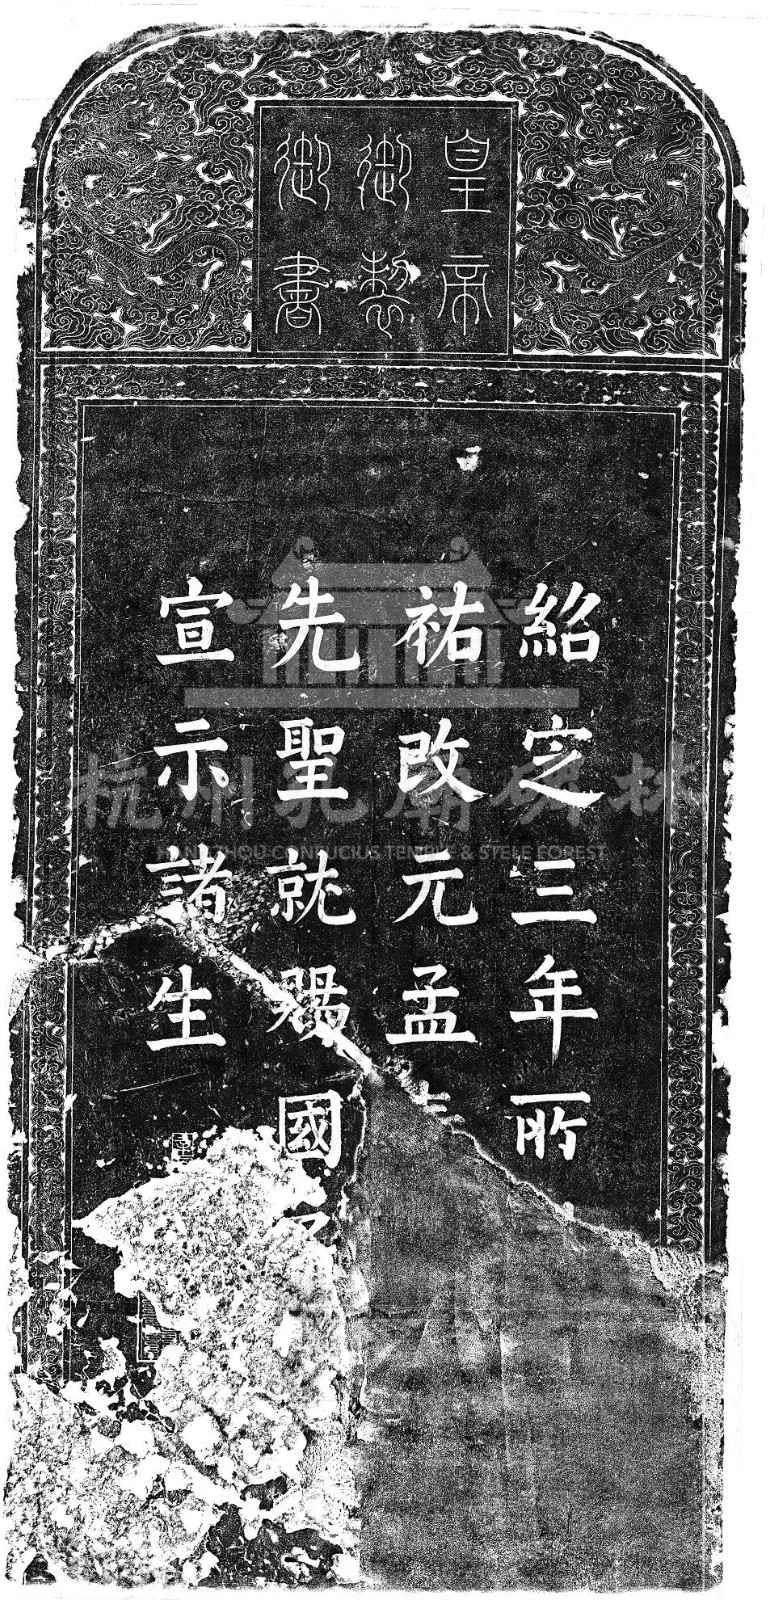 皇帝
御製
御書
紹定三年所
祐改元孟
先聖就賜國
宣示諸生
杭州孔廟碑林
HANGZHOU CONFUCIUS TEMPLE & STELE FOREST